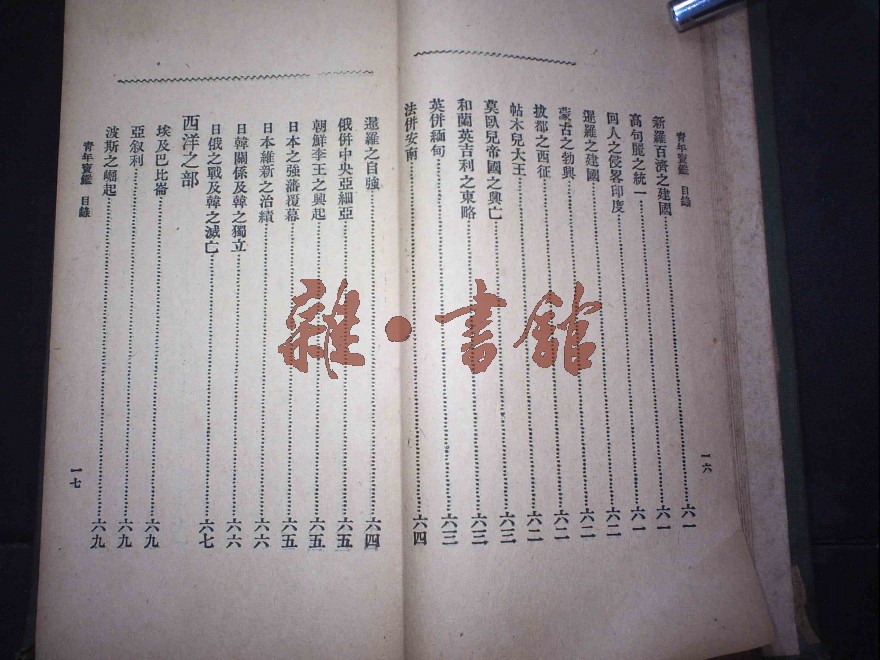 青年寶鑑 目錄
一六
新羅百濟之建國……六一
高句麗之統一……六一
回人之侵畧印度……六二
暹羅之建國……六二
蒙古之勃興……六二
拔都之西征……六二
帖木兒大王……六三
莫臥兒帝國之興亡……六三
和蘭英吉利之東略……六三
英併緬甸……六三
法併安南……六四
暹羅之自強……六四
俄併中央亞細亞……六五
朝鮮李王之興起……六五
日本之強藩覆幕……六五
日本維新之治績……六六
日韓關係及韓之獨立……六六
日俄之戰及韓之滅亡……六七
西洋之部
埃及巴比崙……六九
亞叙利……六九
波斯之崛起……六九
青年寶鑑 目錄
一七
雜·書館